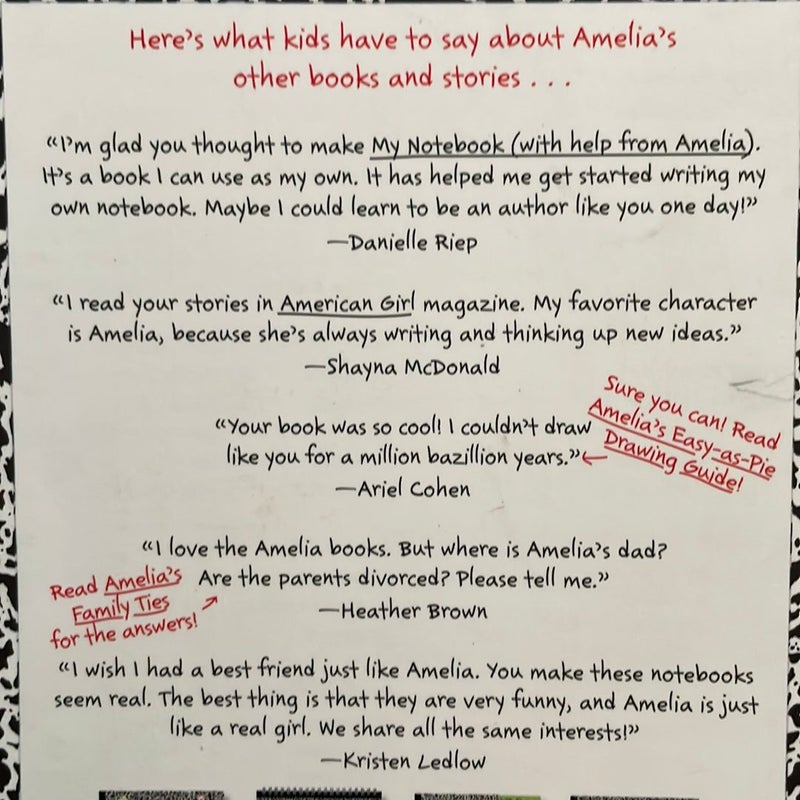 Here's what kids have to say about Amelia's
other books and stories . . .
"I'm glad you thought to make My Notebook (with help from Amelia).
It's a book I can use as my own. It has helped me get started writing my
own notebook. Maybe I could learn to be an author like you one day!"
—Danielle Riep
"I read your stories in American Girl magazine. My favorite character
is Amelia, because she's always writing and thinking up new ideas."
—Shayna McDonald
"Your book was so cool! I couldn't draw
like you for a million bazillion years."
—Ariel Cohen
Sure you can! Read
Amelia's Easy-as-Pie
Drawing Guide!
"I love the Amelia books. But where is Amelia's dad?
Are the parents divorced? Please tell me."
—Heather Brown
Read Amelia's
Family Ties
for the answers!
"I wish I had a best friend just like Amelia. You make these notebooks
seem real. The best thing is that they are very funny, and Amelia is just
like a real girl. We share all the same interests!"
—Kristen Ledlow